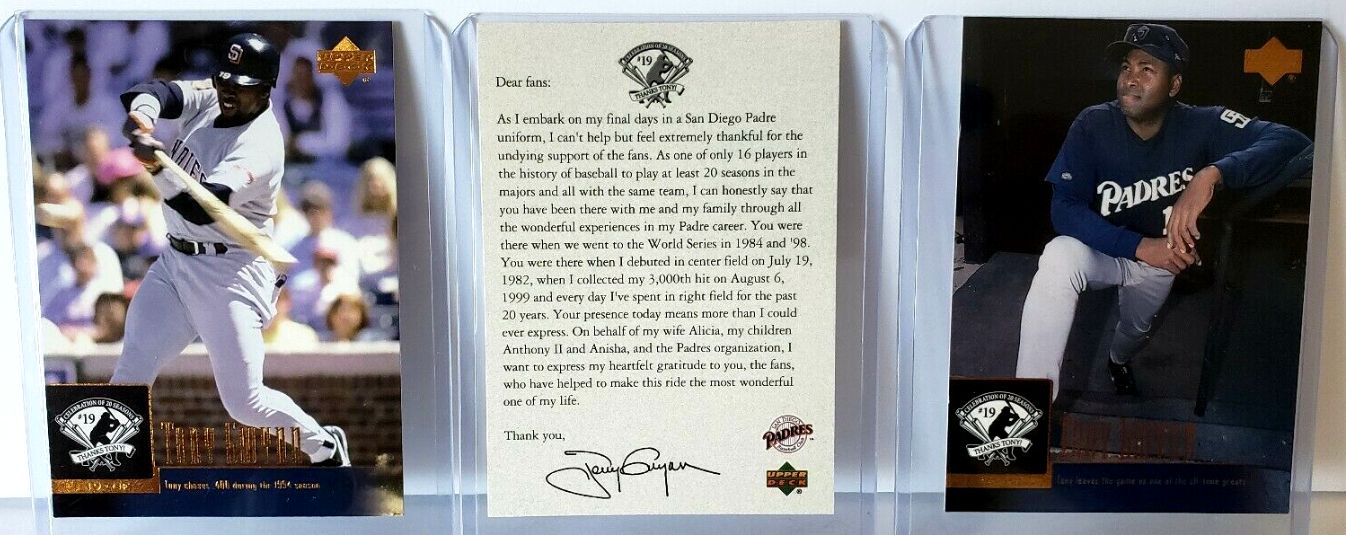 UPPER
DECK
CELEBRATION OF 20 SEASONS
#19
THANKS TONY!
Tony Gwynn
Tony chases .400 during the 1994 season
CELEBRATION OF 20 SEASONS
#19
THANKS TONY!
Dear fans:
As I embark on my final days in a San Diego Padre
uniform, I can't help but feel extremely thankful for the
undying support of the fans. As one of only 16 players in
the history of baseball to play at least 20 seasons in the
majors and all with the same team, I can honestly say that
you have been there with me and my family through all
the wonderful experiences in my Padre career. You were
there when we went to the World Series in 1984 and '98.
You were there when I debuted in center field on July 19,
1982, when I collected my 3,000th hit on August 6,
1999 and every day I've spent in right field for the past
20 years. Your presence today means more than I could
ever express. On behalf of my wife Alicia, my children
Anthony II and Anisha, and the Padres organization, I
want to express my heartfelt gratitude to you, the fans,
who have helped to make this ride the most wonderful
one of my life.
Thank you,
Tony Gwynn
SAN DIEGO
PADRES
Baseball Club
UPPER
DECK
PADRES
CELEBRATION OF 20 SEASONS
#19
THANKS TONY!
Tony Gwynn
Tony leaves the game as one of the all-time greats